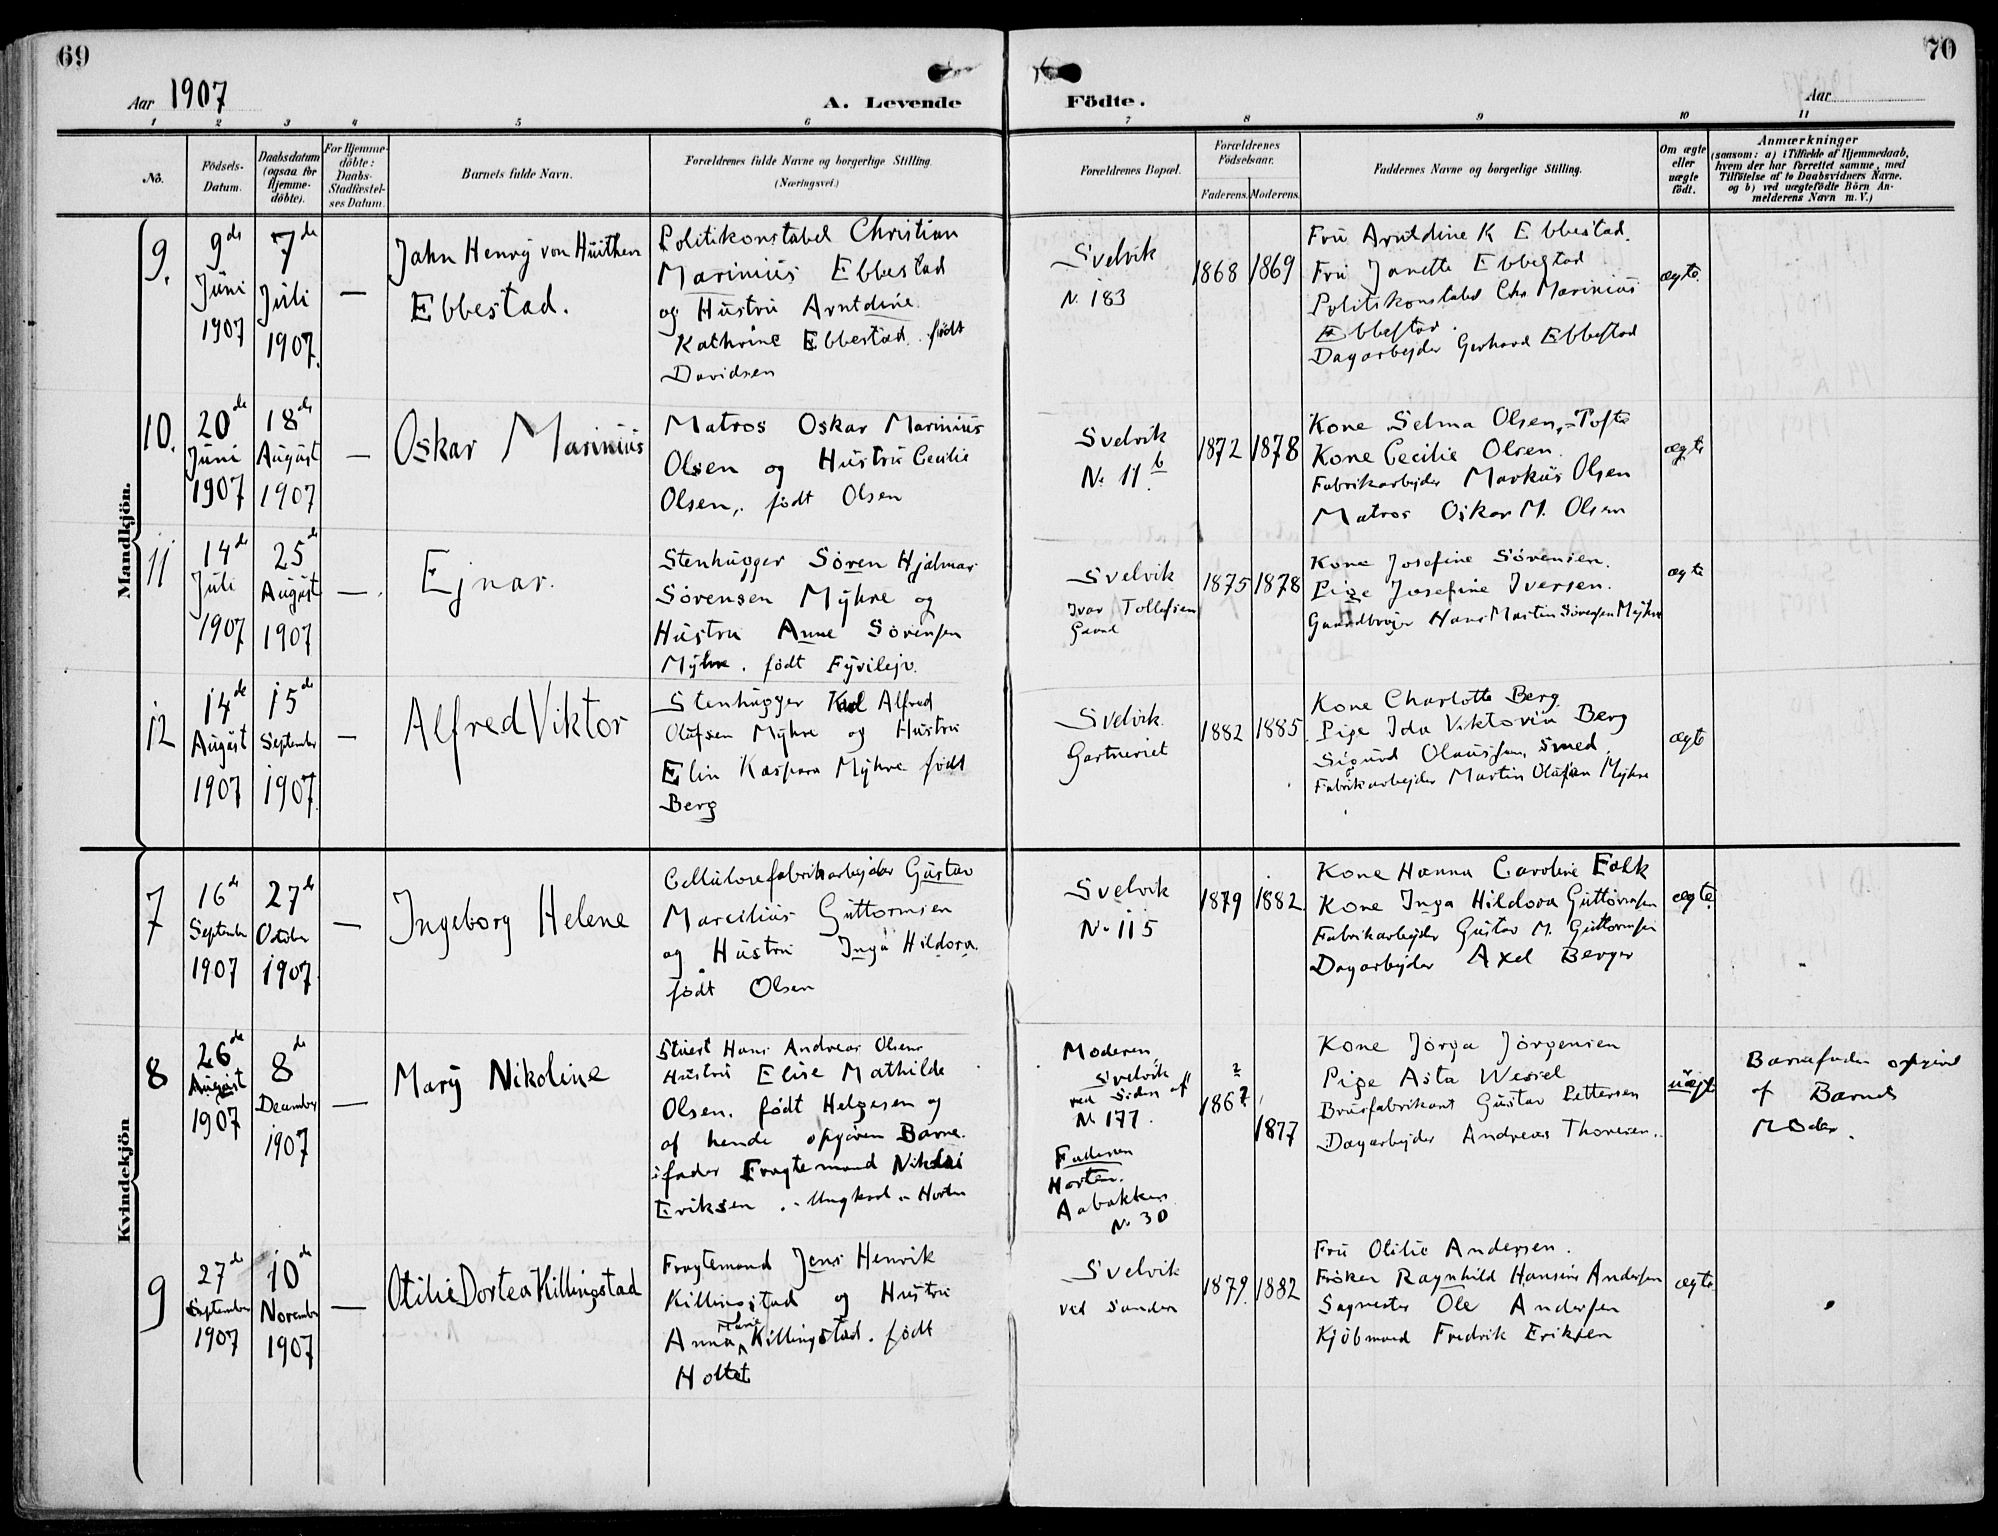 69
70
Aar 1907
A. Levende
Födte.
Aar
1 2 3 4 5 6 7 8 9 10 11
No.
Födsels-
Datum.
Daabsdatum
(ogsaa for
Hjemme-
döbte).
For Hjemme-
döbte:
Daabs-
Stadfæstel-
ses Datum.
Barnets fulde Navn.
Forældrenes fulde Navne og borgerlige Stilling.
(Næringsvei.)
Forældrenes Bopæl.
Forældrenes
Födselsaar.
Faderens.
Moderens.
Faddernes Navne og borgerlige Stilling.
Om ægte
eller
uægte
födt.
Anmærkninger
(saasom: a) i Tilfælde af Hjemmedaab,
hvem der har forrettet samme, med
Tilföielse af to Daabsvidners Navne.
og b) ved uægtefödte Börn An-
melderens Navn m. V.)
Mandkjön.
9.
9de
Juni
1907
7de
Juli
1907.
—
John Henry von Huithen
Ebbestad.
Politikonstabel Christian
Marinius Ebbestad
og Hustru Arntdine
Kathrine Ebbestad. født
Davidsen
Svelvik
N. 183
1868
1869
Fru Arntdine K Ebbestad.
Fru Janette Ebbestad
Politikonstabel Chr. Marinius
Ebbestad.
Dagarbejder Gerhard Ebbestad
ægte.
10.
20de
Juni
1907
18de
August
1907
—
Oskar Marinius
Matros Oskar Marinius
Olsen og Hustru Cecilie
Olsen, født Olsen
Svelvik
N. 11 b
1872
1878
Kone Selma Olsen, Tofte
Kone Cecilie Olsen.
Fabrikarbejder Markus Olsen
Matros Oskar M. Olsen
ægte
11
14de
Juli
1907
25de
August
1907
—
Ejnar.
Stenhugger Sören Hjalmar
Sörensen Myhre og
Hustru Anne Sörensen
Myhre. født
Svelvik
Ivar Tollefsen
Gaard
1875
1878
Kone Josefine Sörensen.
Pige Josefine Iversen.
Gaardbruger Hans Martin Sörensen Myhre
ægte
12
14de
August
1907
15de
September
1907
—
Alfred Viktor
Stenhugger Karl Alfred
Olafsen Myhre og Hustru
Elin Kaspara Myhre født
Berg
Svelvik.
Gartneriet
1882
1885
Kone Charlotte Berg.
Pige Ida Viktoria Berg
Sigurd Olaussen, Smed.
Fabrikarbejder Martin Olafsen Myhre
ægte
Kvindekjön
7
16de
September
1907
27de
October
1907.
—
Ingeborg Helene
Cellulosefabrikarbejder Gustav
Marcilius Guttormsen
og Hustru Inga Hildora.
født Olsen
Svelvik
N. 115
1879
1882
Kone Hanna Caroline Falk
Kone Inga Hildora Guttormsen
Fabrikarbejder Gustav M. Guttormsen
Dagarbejder Axel Berger
ægte.
8
26de
August
1907
8de
December
1907
—
Mary Nikoline
Stuert Hans Andreas Olsens
Hustru Elise Mathilde
Olsen. født Helgesen og
af hende opgiven Barne-
fader Fragtemand Nikolai
Eriksen. Ungkarl. Horten
Moderen
Svelvik
ved Siden af
N. 177.
Faderen
Horten.
Aabakken
N. 30
1867
1877
Kone Jörga Jörgensen
Pige Asta Wessel
Brusfabrikant Gustav Pettersen
Dagarbejder Andreas Thoresen.
uægte
Barnefader opgivet
af Barnets
Moder.
9
27de
September
1907
10de
November
1907
—
Otilie Dortea Killingstad
Fragtemand Jens Henrik
Killingstad og Hustru
Anna Marie Killingstad. født
Holtet
Svelvik
ved Sanden
1879.
1882
Fru Otilie Andersen.
Fröken Ragnhild Hansine Andersen
Sagmester Ole Andersen
Kjöbmand Fredrik Eriksen
ægte